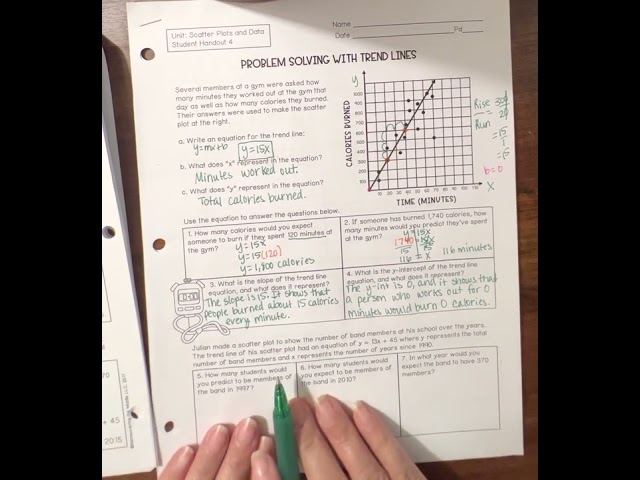 Unit: Scatter Plots and Data
Student Handout 4
Name
Date
Pd
PROBLEM SOLVING WITH TREND LINES
Several members at a gym were asked how
many minutes they worked out at the gym that
day as well as how many calories they burned.
Their answers were used to make the scatter
plot at the right.
a. Write an equation for the trend line:
y=mx+b y=15x
b. What does "x" represent in the equation?
Minutes worked out.
c. What does "y" represent in the equation?
Total calories burned.
y
CALORIES BURNED
1000
900
800
700
600
500
400
300
200
100
TIME (MINUTES)
x
Rise
Run
= 15
1
b=0
Use the equation to answer the questions below.
1. How many calories would you expect
someone to burn if they spent 120 minutes at
the gym?
y = 15x
y = 15(120)
y = 1,800 calories
2. If someone has burned 1,740 calories, how
many minutes would you predict they've spent
at the gym?
y = 15x
1740 = 15x
15 15
116 = x 116 minutes
3. What is the slope of the trend line
equation, and what does it represent?
The slope is 15. It shows that
people burned about 15 calories
every minute.
4. What is the y-intercept of the trend line
equation, and what does it represent?
The y-int is 0, and it shows that
a person who works out for 0
minutes would burn 0 calories.
Julian made a scatter plot to show the number of band members at his school over the years.
The trend line of his scatter plot had an equation of y = 13x + 45 where y represents the total
number of band members and x represents the number of years since 1990.
5. How many students would
you predict to be members of
the band in 1997?
6. How many students would
you expect to be members of
the band in 2010?
7. In what year would you
expect the band to have 370
members?
+ 45
2015